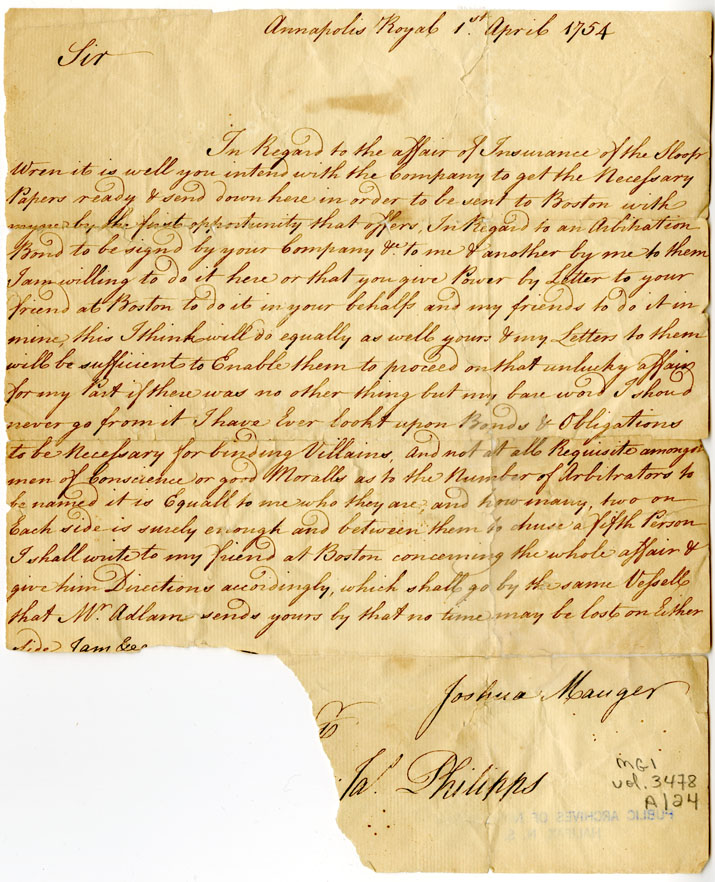 Annapolis Royal 1st. April 1754
Sir
In Regard to the affair of Insurance of the Sloop
Wren it is well you intend with the Company to get the Necessary
Papers ready & send down here in order to be sent to Boston with
myne by the first opportunity that offers, In Regard to an Arbitration
Bond to be signed by your Company &c. to me & another by me to them
I am willing to do it here or that you give Power by Letter to your
friend at Boston to do it in your behalf and my friends to do it in
mine, this I think will do equally as well yours & my Letters to them
will be sufficient to Enable them to proceed on that unlucky affair
for my Part if there was no other thing but my bare word I should
never go from it I have Ever lookt upon Bonds & Obligations
to be Necessary for binding Villains, And not at all Requisite amongst
men of Conscience or good Moralls as to the Number of Arbitrators to
be named it is Equall to me who they are, and how many, two on
Each side is surely enough and between them to chuse a fifth Person
I shall write to my friend at Boston concerning the whole affair &
give him Directions accordingly, which shall go by the same Vessell
that Mr. Adlam sends yours by that no time may be lost on Either
side I am &c
Joshua Mauger
Philipps
MG1
vol. 3478
A/24
PUBLIC ARCHIVES OF N
HALIFAX, N. S.